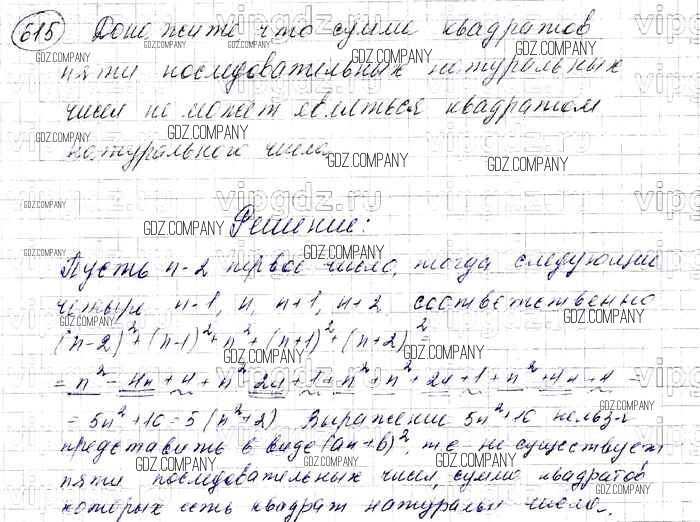 615 Докажите что сумма квадратов
пяти последовательных натуральных
чисел не может являться квадратом
натурального числа.
Решение:
Пусть n-2 первое число, тогда следующие
четыре n-1, n, n+1, n+2 соответственно
(n-2)²+(n-1)²+n²+(n+1)²+(n+2)²=
= n²-4n+4+n² 2n+1+n²+n²+2n+1+n²+4n+4 =
= 5n²+10=5(n²+2) Выражение 5n²+10 нельзя
представить в виде (an+b)², т.е. не существует
пяти последовательных чисел, сумма квадратов
которых есть квадрат натуральн числа.